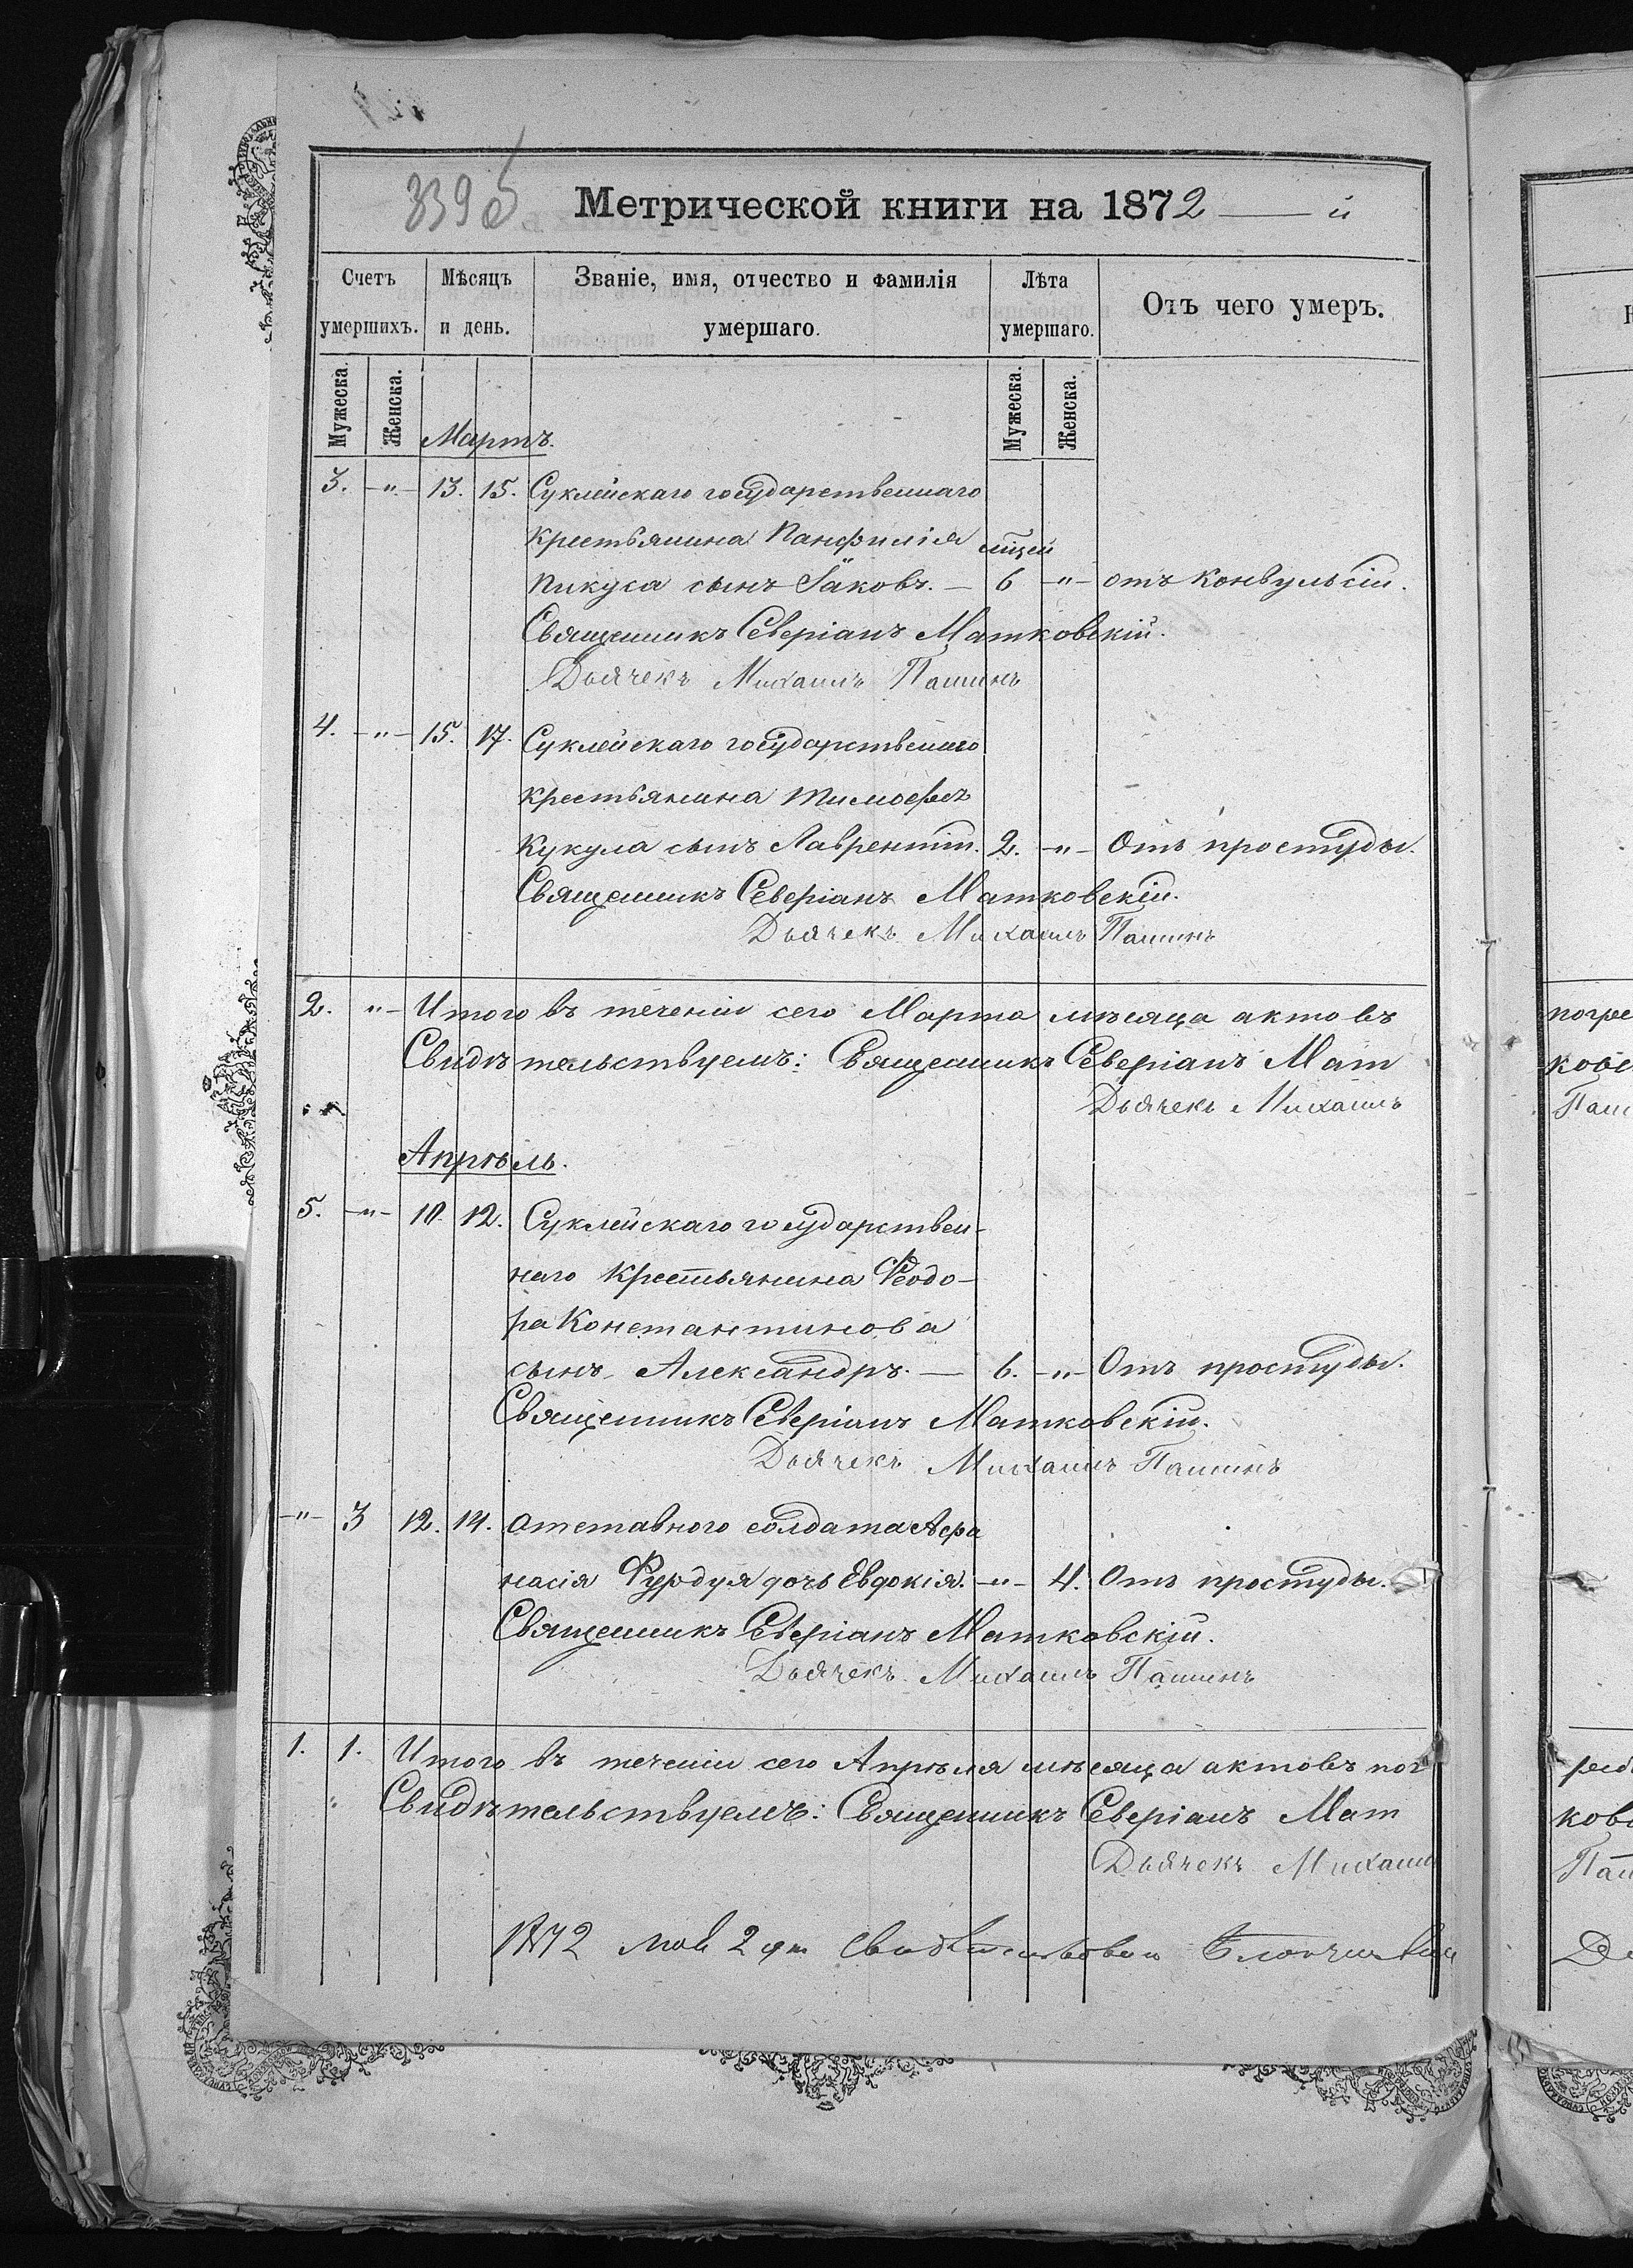 339 б
Метрической книги на 1872 — й
Счетъ умершихъ.
Мѣсяцъ и день.
Званіе, имя, отчество и фамилія умершаго.
Лѣта умершаго.
Отъ чего умеръ.
Мужеска. Женска. Мужеска. Женска.
Мартъ.
3. -"- 13. 15. Суклейскаго государственнаго
крестьянина Панфилія мцей
Пикуса сынъ Іаковъ. — 6 -"- отъ конвульсіи.
Священникъ Северіанъ Матковскій.
Дьячекъ Михаилъ Пашинъ
4. -"- 15. 17. Суклейскаго государственнаго
крестьянина Тимофея
Кукула сынъ Лаврентій. 2. -"- Отъ простуды.
Священникъ Северіанъ Матковскій.
Дьячекъ Михаилъ Пашинъ
2. "- Итого въ теченіи сего Марта мѣсяца актовъ погре
Свидѣтельствуемъ: Священникъ Северіанъ Мат
Дьячекъ Михаилъ
Апрѣль.
5. -"- 10. 12. Суклейскаго государствен-
наго крестьянина Феодо-
ра Константинова
сынъ Александръ. — 6. -"- Отъ простуды.
Священникъ Северіанъ Матковскій.
Дьячекъ Михаилъ Пашинъ
-"- 3 12. 14. Отставного солдата Афа
насія Фурдуя дочь Евдокія. -"- 4. Отъ простуды.
Священникъ Северіанъ Матковскій.
Дьячекъ Михаилъ Пашинъ
1. 1. Итого въ теченіи сего Апрѣля мѣсяца актовъ пог
Свидѣтельствуемъ: Священникъ Северіанъ Мат
Дьячекъ Михаилъ
1872 мая 2 дня свидѣтельствовалъ